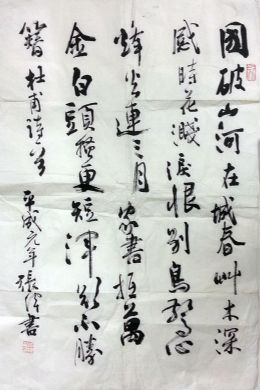 國破山河在城春艸木深
感時花濺淚恨別鳥驚心
烽火連三月家書抵萬
金白頭搔更短渾欲不勝
簪杜甫詩 平成元年張書